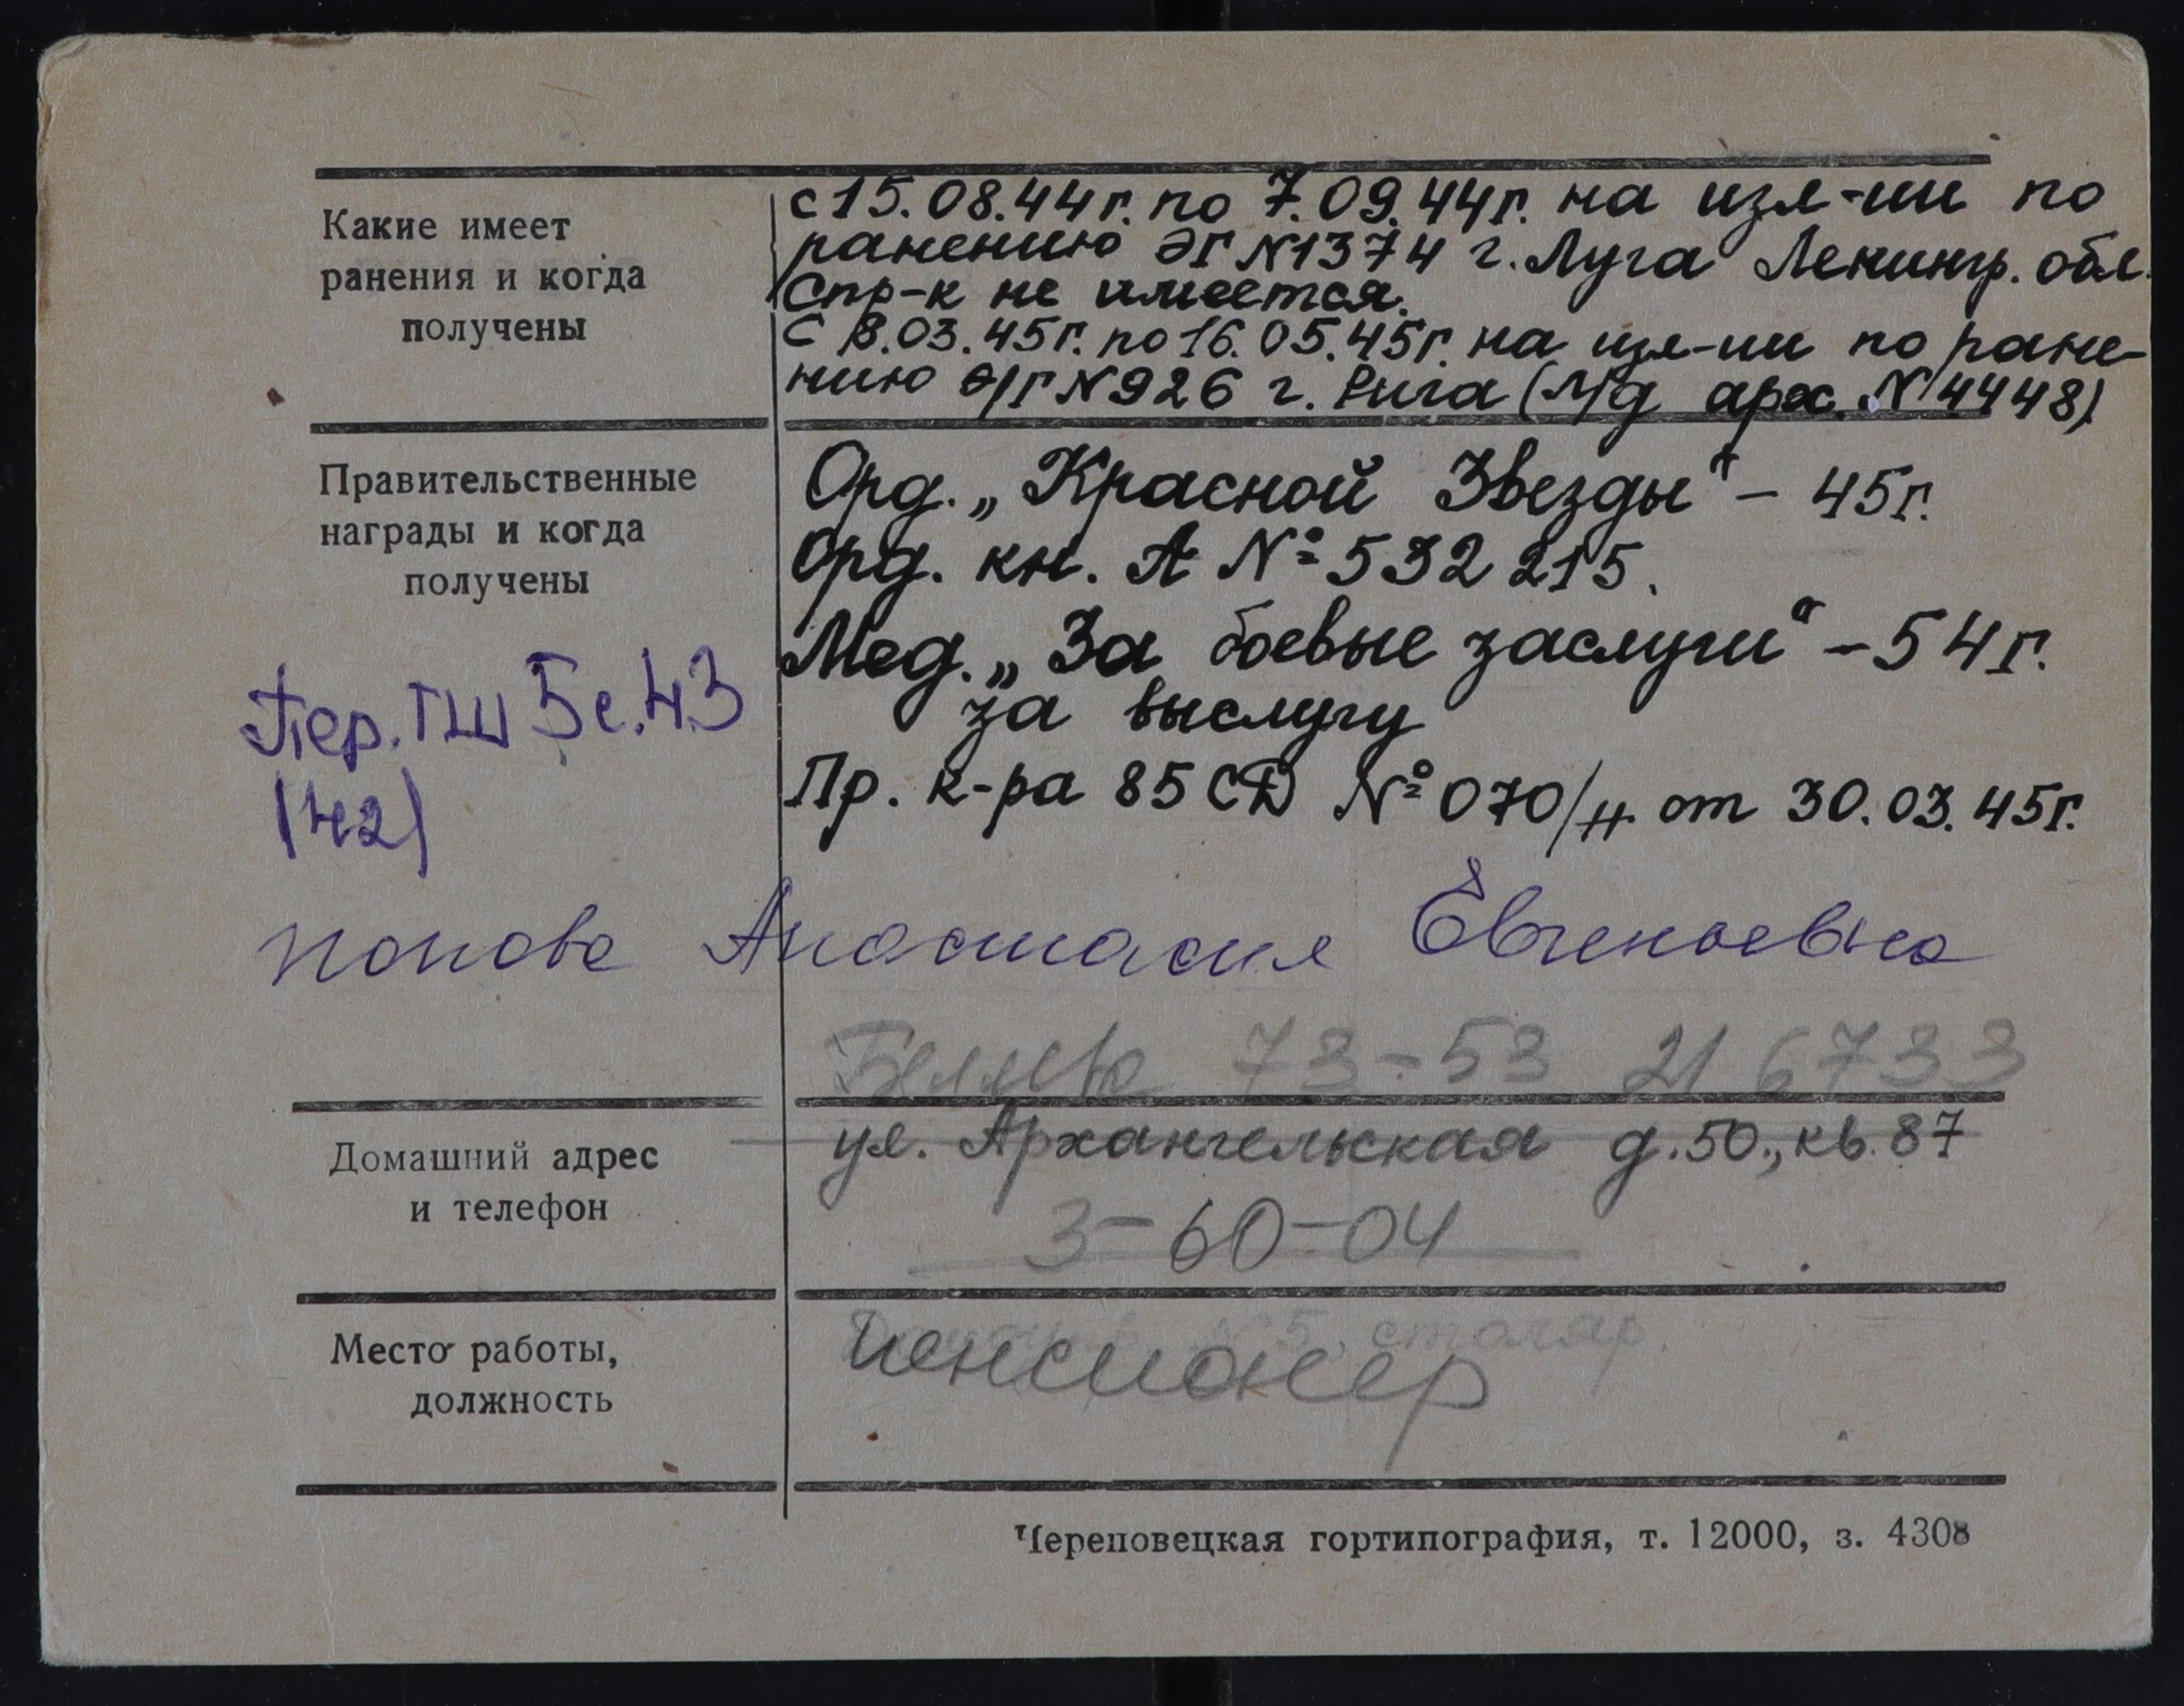 Какие имеет
ранения и когда
получены
с 15.08.44г. по 7.09.44г. на изл-ии по
ранению ЭГ N1374 г. Луга Ленингр. обл.
Спр-к не имеется.
С 8.03.45г. по 16.05.45г. на изл-ии по ране-
нию э/г N926 г. Рига (М/д арх. N 4448)
Правительственные
награды и когда
получены
Орд. „Красной Звезды“ – 45г.
Орд. кн. А № 532 215.
Мед. „За боевые заслуги“ – 54г.
за выслугу
Пр. к-ра 85 СД № 070/н от 30.03.45г.
Пер. ГШ 5 с. 43
(42)
Попова Анастасия Евгеньевна
73-53 21 6733
Домашний адрес
и телефон
ул. Архангельская д.50., кв. 87
3-60-04
Место работы,
должность
пенсионер
столяр.
Череповецкая гортипография, т. 12000, з. 4308